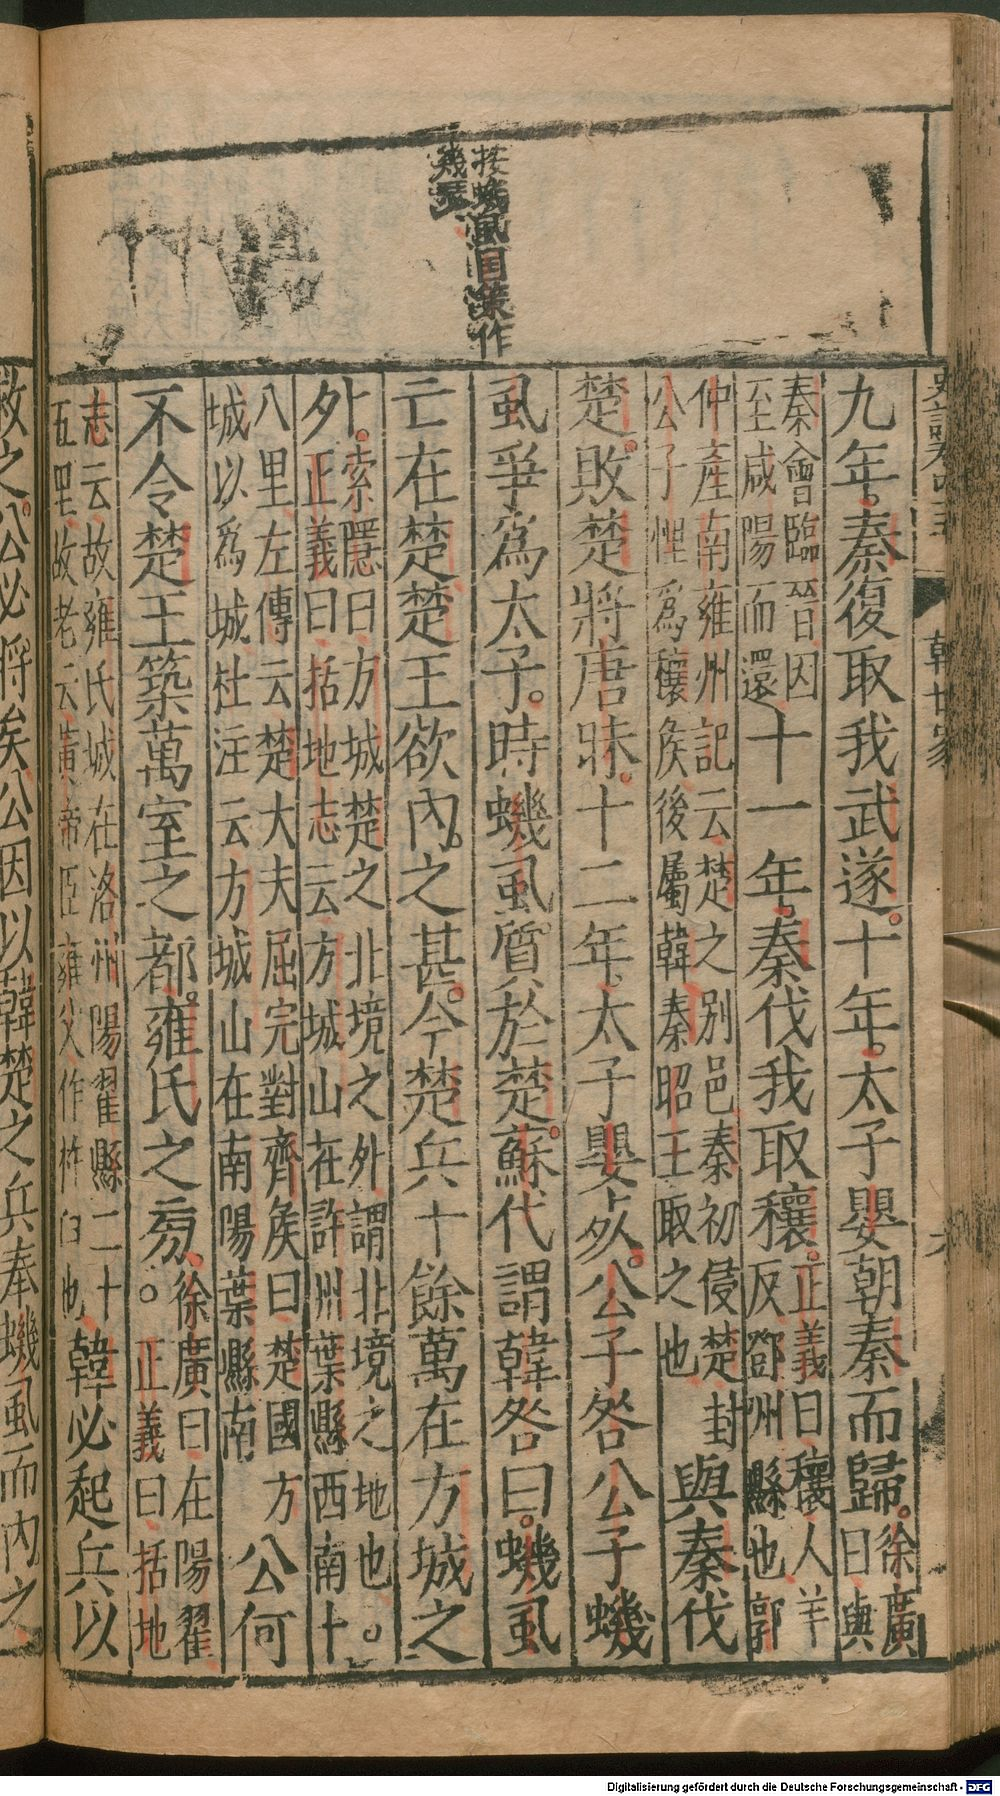 史記卷四十五 韓世家 六
按蟣虱国策作
幾瑟
九年。秦復取我武遂。十年。太子嬰朝秦而歸。徐廣曰與
秦會臨晉因至咸陽而還十一年。秦伐我取穰。正義曰穰人羊反鄧州縣也郭
仲產南雍州記云楚之別邑秦初侵楚封公子悝爲穰矦後屬韓秦昭王取之也與秦伐
楚。敗楚將唐昧。十二年。太子嬰死。公子咎公子蟣
虱爭爲太子。時蟣虱質於楚。蘇代謂韓咎曰。蟣虱
亡在楚楚王欲內。之甚。今楚兵十餘萬在方城之
外。索隱曰方城楚之北境之外謂北境之地也。正義曰括地志云方城山在許州葉縣西南十
八里左傳云楚大夫屈完對齊矦曰楚國方城以爲城杜注云方城山在南陽葉縣南公何
不令楚王築萬室之都。雍氏之旁。徐廣曰在陽翟。正義曰括地
志云故雍氏城在洛州陽翟縣二十五里故老云黃帝臣雍父作杵臼也韓必起兵以
救之。公必將矣公因以韓楚之兵奉蟣虱而內之
Digitalisierung gefördert durch die Deutsche Forschungsgemeinschaft - DFG